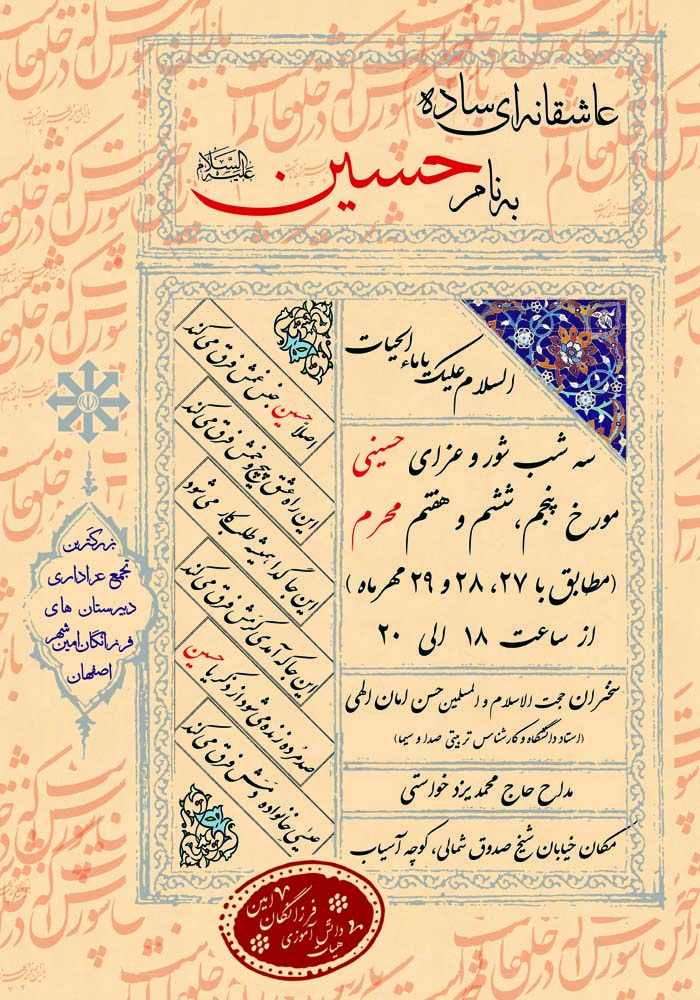 عاشقانه‌ای ساده
به نام حسین علیه السلام
السلام علیک یا ماء الحیات
سه شب شور و عزای حسینی
مورخ پنجم، ششم و هفتم محرم
(مطابق با ۲۷، ۲۸ و ۲۹ مهرماه)
از ساعت ۱۸ الی ۲۰
سخنران حجت الاسلام و المسلمین حسن امان الهی
(استاد دانشگاه و کارشناس تربیتی صدا و سیما)
مداح حاج محمد یزدخواستی
مکان خیابان شیخ صدوق شمالی، کوچه آسیاب
اصلاً حسین جنس غمش فرق می کند
این راه عشق پیچ و خمش فرق می کند
این جا گدا همیشه طلبکار می شود
این جا که آمدی کرمش فرق می کند
صد مرده زنده می شود از ذکر یا حسین
عیسی خانواده دمش فرق می کند
بزرگترین
تجمع عزاداری
دبیرستان های
فرزانگان امین شهر
اصفهان
هیات دانش آموزی
فرزانگان امین